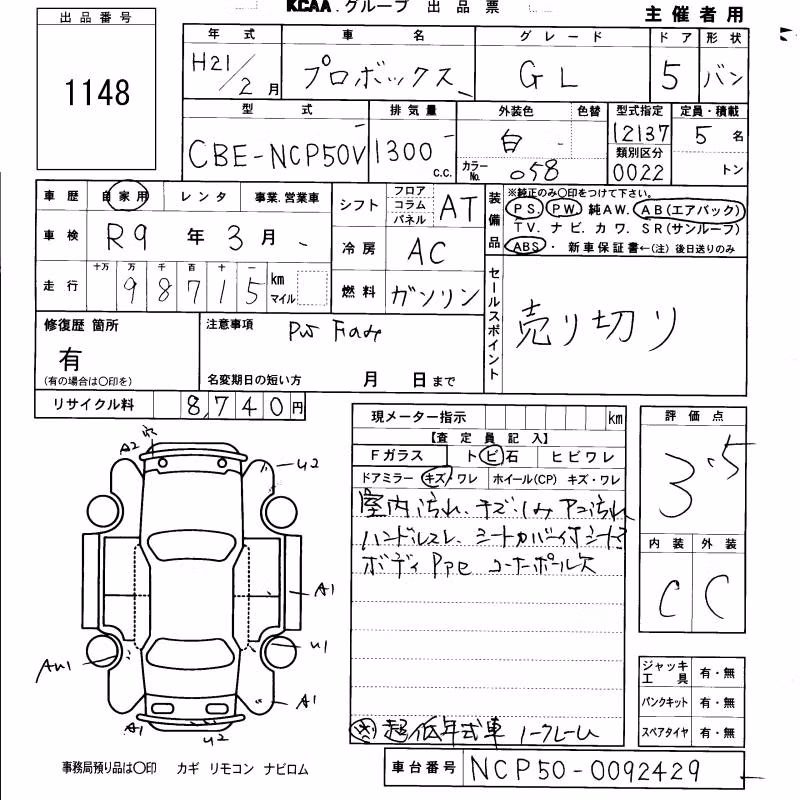 KCAA.グループ 出品票
主催者用
出品番号
1148
年式 車名 グレード ドア 形状
H21/2月 プロボックス GL 5 バン
型式 排気量 外装色 色替 型式指定 定員・積載
CBE-NCP50V 1300 c.c. 白 12137 5 名
カラーNo. 058 類別区分 0022 トン
車歴 自家用 レンタ 事業.営業車
車検 R9 年 3 月
走行 十万 万 千 百 十 一 km マイル
98715
シフト フロア コラム パネル AT
冷房 AC
燃料 ガソリン
装備品
※純正のみ〇印をつけて下さい。
PS. PW. 純AW. AB(エアバック)
TV. ナビ. カワ. SR(サンルーフ)
ABS ・ 新車保証書←(注) 後日送りのみ
セールスポイント
売り切り
修復歴 箇所
有
(有の場合は〇印を)
注意事項
名変期日の短い方 月 日まで
リサイクル料 8,740円
現メーター指示 km
【査定員記入】
Fガラス トビ石 ヒビワレ
ドアミラー キズ/ワレ ホイール(CP) キズ・ワレ
室内汚れ、キズ、しみ
ハンドルスレ、シートカバー付
ボディ コーナーポール欠
超低年式車 ノークレーム
評価点
3.5
内装 外装
C C
A2 穴
U2
A1
U1
A1
A1
U2
ジャッキ工具 有・無
パンクキット 有・無
スペアタイヤ 有・無
事務局預り品は〇印 カギ リモコン ナビロム
車台番号 NCP50-0092429